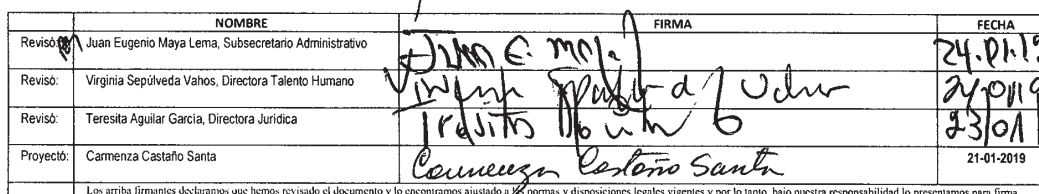 NOMBRE FIRMA FECHA
Revisó: Juan Eugenio Maya Lema, Subsecretario Administrativo Juan E. Maya 24.01.19
Revisó: Virginia Sepúlveda Vahos, Directora Talento Humano 24/01/19
Revisó: Teresita Aguilar García, Directora Jurídica Teresita 23/01
Proyectó: Carmenza Castaño Santa Carmenza Castaño Santa 21-01-2019
Los arriba firmantes declaramos que hemos revisado el documento y lo encontramos ajustado a las normas y disposiciones legales vigentes y por lo tanto, bajo nuestra responsabilidad lo presentamos para firma